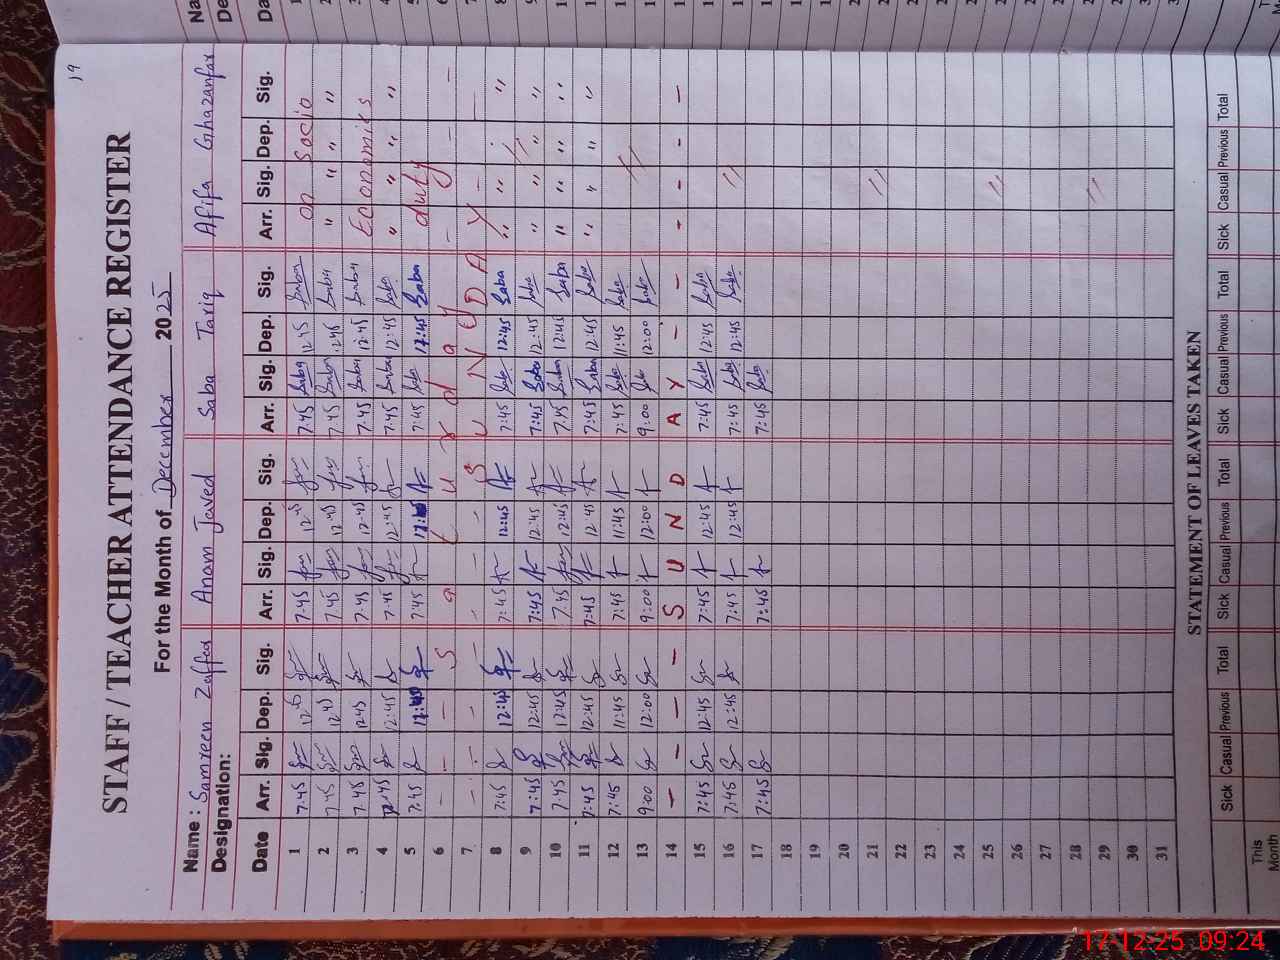 19
STAFF / TEACHER ATTENDANCE REGISTER
For the Month of December 2025
Name : Samreen Zaffar Anam Javed Saba Tariq Afifa Ghazanfar
Designation:
Date Arr. Sig. Dep. Sig. Arr. Sig. Dep. Sig. Arr. Sig. Dep. Sig. Arr. Sig. Dep. Sig.
1 7.45 12:45 7.45 12:45 7.45 Saba 12:45 Saba on Socio
2 7.45 12:45 7.45 12:45 7.45 Saba 12:45 Saba " " " "
3 7.45 12:45 7.45 12:45 7.45 Saba 12:45 Saba Economics
4 7.45 12:45 7.45 12:45 7.45 Saba 12:45 Saba " " " "
5 7.45 12:45 7:45 12:45 7:45 Saba 12:45 Saba duty
6 - - - S a t u r d a y - - -
7 - - - - - - S U N D A Y - -
8 7:45 12:45 7:45 12:45 7:45 Saba 12:45 Saba " " " "
9 7:45 12:45 7:45 12:45 7:45 Saba 12:45 Saba " " " "
10 7.45 12:45 7.45 12:45 7.45 Saba 12:45 Saba " " " "
11 7:45 12:45 7:45 12:45 7:45 Saba 12:45 Saba " " " "
12 7:45 11:45 7:45 11:45 7:45 Saba 11:45 Saba
13 9:00 12:00 9:00 12:00 9:00 Saba 12:00 Saba "
14 - - - - S U N D A Y - - - - - -
15 7:45 12:45 7:45 12:45 7:45 Saba 12:45 Saba
16 7:45 12:45 7:45 12:45 7:45 Saba 12:45 Saba "
17 7:45 7:45 7:45 Saba
18
19
20
21 "
22
23
24
25 "
26
27
28 "
29
30
31
STATEMENT OF LEAVES TAKEN
Sick Casual Previous Total Sick Casual Previous Total Sick Casual Previous Total Sick Casual Previous Total
This Month
17-12-25 09:24